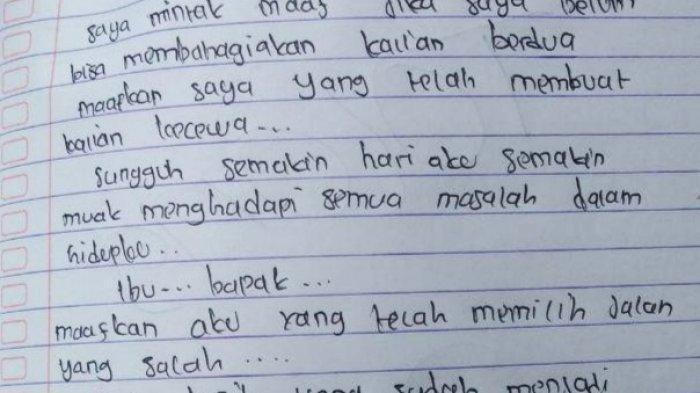 saya mintak maaf jika saya belum
bisa membahagiakan kalian berdua
maapkan saya yang telah membuat
kalian kecewa...
sungguh semakin hari aku semakin
muak menghadapi semua masalah dalam
hidupku..
Ibu... bapak...
maafkan aku yang telah memilih Jalan
yang salah ....
yang sudah menjadi